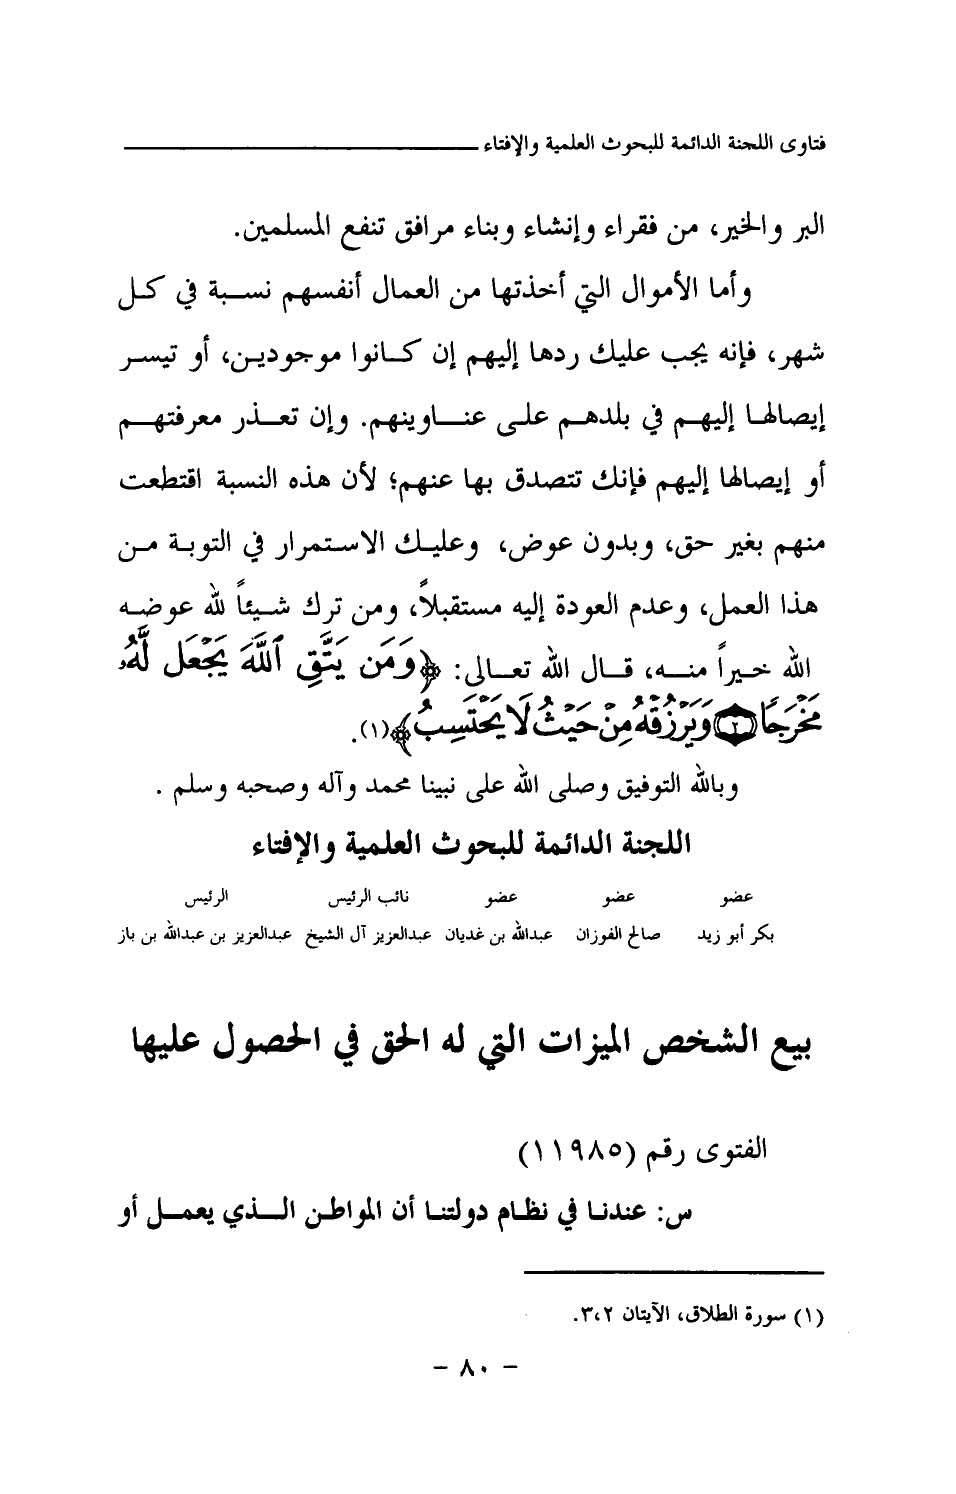 فتاوى اللجنة الدائمة للبحوث العلمية والإفتاء
البر والخير، من فقراء وإنشاء وبناء مرافق تنفع المسلمين.
وأما الأموال التي أخذتها من العمال أنفسهم نسبة في كل
شهر، فإنه يجب عليك ردها إليهم إن كانوا موجودين، أو تيسر
إيصالها إليهم في بلدهم على عناوينهم. وإن تعذر معرفتهم
أو إيصالها إليهم فإنك تتصدق بها عنهم؛ لأن هذه النسبة اقتطعت
منهم بغير حق، وبدون عوض، وعليك الاستمرار في التوبة من
هذا العمل، وعدم العودة إليه مستقبلاً، ومن ترك شيئاً لله عوضه
الله خيراً منه، قال الله تعالى: ﴿وَمَن يَتَّقِ ٱللَّهَ يَجْعَل لَّهُۥ
مَخْرَجًا ۝٢ وَيَرْزُقْهُ مِنْ حَيْثُ لَا يَحْتَسِبُ﴾(١).
وبالله التوفيق وصلى الله على نبينا محمد وآله وصحبه وسلم .
اللجنة الدائمة للبحوث العلمية والإفتاء
عضو عضو عضو نائب الرئيس الرئيس
بكر أبو زيد صالح الفوزان عبدالله بن غديان عبدالعزيز آل الشيخ عبدالعزيز بن عبدالله بن باز
بيع الشخص الميزات التي له الحق في الحصول عليها
الفتوى رقم (١١٩٨٥)
س: عندنا في نظام دولتنا أن المواطن الذي يعمل أو
(١) سورة الطلاق، الآيتان ٣،٢.
- ٨٠ -